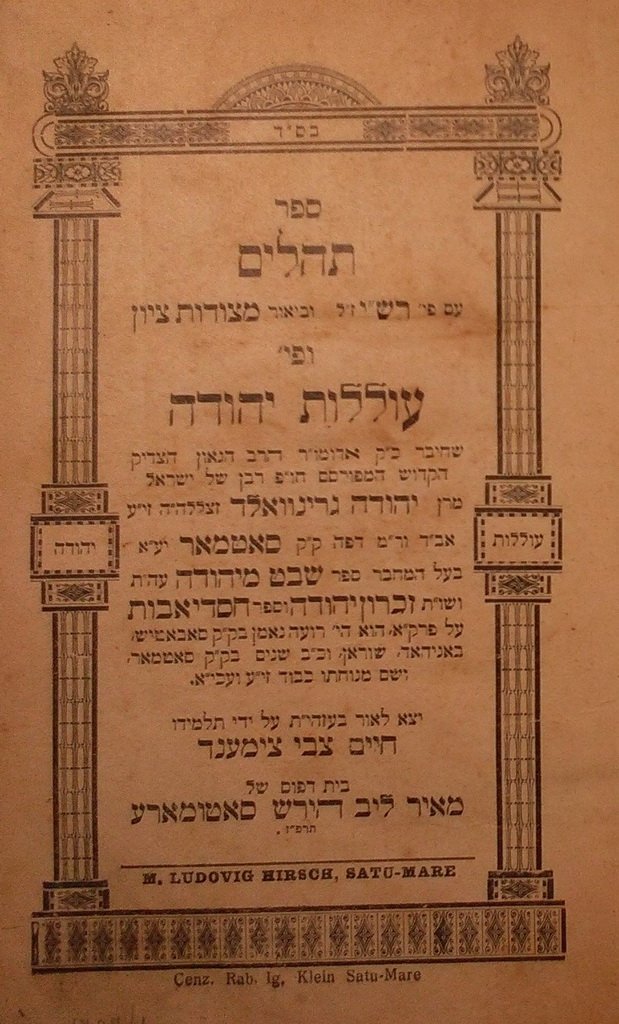 בס״ד
ספר
תהלים
עם פי׳ רש״י ז״ל וביאור מצודות ציון
ופי׳
עוללות יהודה
שחיבר כ״ק אדומו״ר הרב הגאון הצדיק
הקדוש המפורסם חו״פ רבן של ישראל
מרן יהודה גרינוואלד זצללה״ה זי״ע
אב״ד ור״מ דפה ק״ק סאטמאר יע״א
בעל המחבר ספר שבט מיהודה עה״ת
ושו״ת זכרון יהודה וספר חסדי אבות
על פרק״א, הוא הי׳ רועה נאמן בק״ק סאבאטיש,
באניהאד, שוראן, וכ״ב שנים בק״ק סאטמאר,
ושם מנוחתו כבוד זי״ע ועכי״א.
עוללות
יהודה
יצא לאור בעזהי״ת על ידי תלמידו
חיים צבי צימענד
בית דפוס של
מאיר ליב הירש סאטומארע
תרפ״ז.
M. LUDOVIG HIRSCH, SATU-MARE
Cenz. Rab. Ig. Klein Satu-Mare